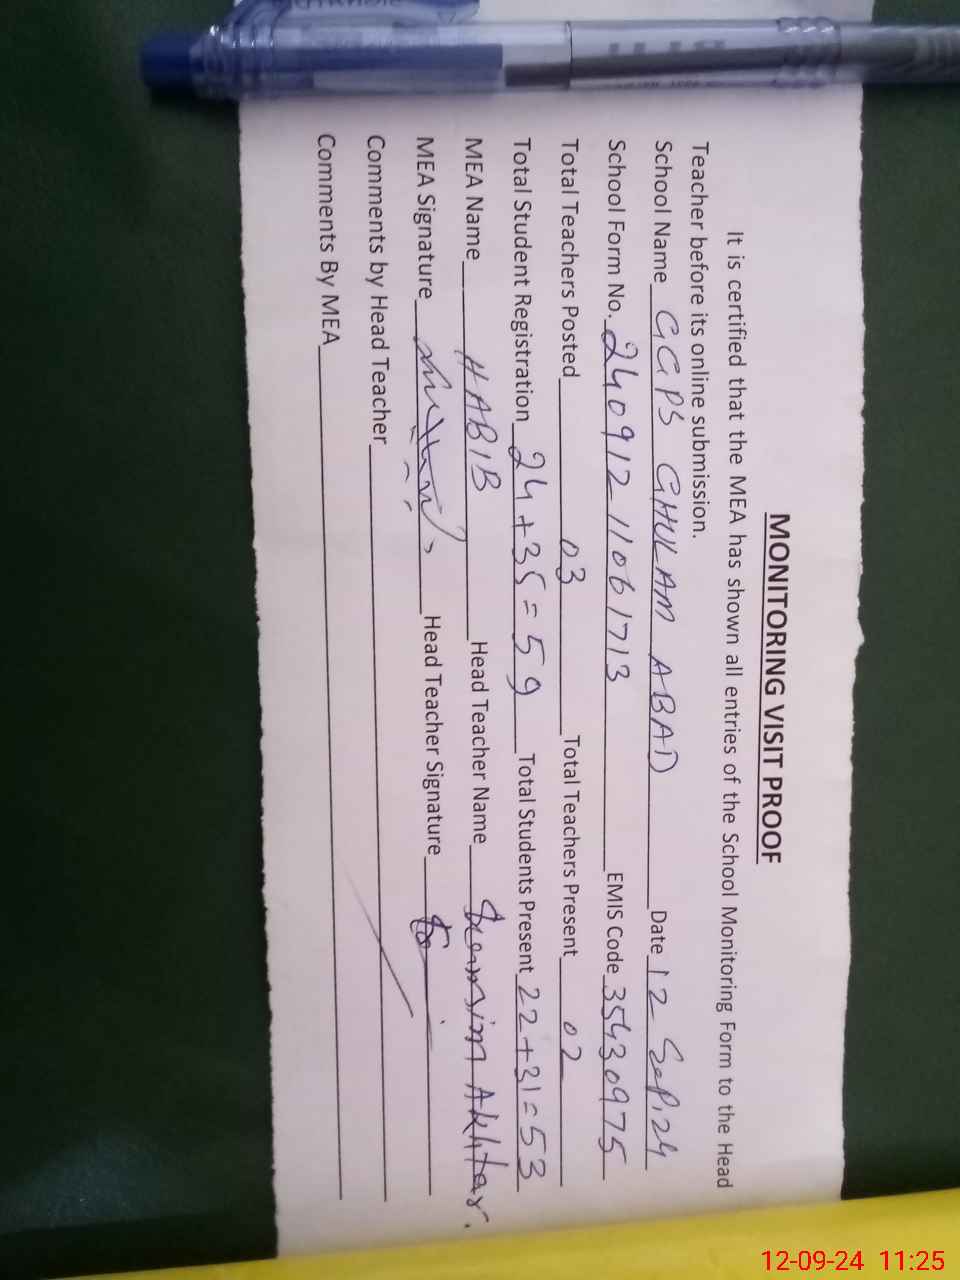 MONITORING VISIT PROOF
It is certified that the MEA has shown all entries of the School Monitoring Form to the Head
Teacher before its online submission.
School Name GGPS GHULAM ABAD Date 12 Sep.24
School Form No. 240912 11061713 EMIS Code 35430975
Total Teachers Posted 03 Total Teachers Present 02
Total Student Registration 24+35=59 Total Students Present 22+31=53
MEA Name HABIB Head Teacher Name Akhtar.
MEA Signature Head Teacher Signature
Comments by Head Teacher
Comments By MEA
12-09-24 11:25